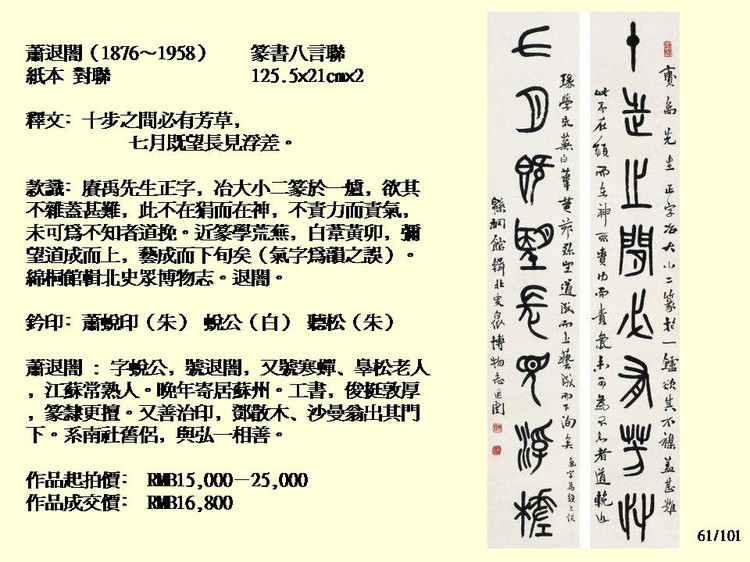 蕭退闇（1876～1958）　　篆書八言聯
紙本 對聯　　125.5x21cmx2
釋文：十步之間必有芳草，
七月既望長見浮差。
款識：賡禹先生正字，冶大小二篆於一爐，欲其
不雜蓋甚難，此不在狷而在神，不責力而責氣，
未可為不知者道挽。近篆學荒蕪，白葦黃卯，彌
望道成而上，藝成而下句矣（氣字為韻之誤）。
綿桐館輯北史眾博物志。退闇。
鈐印：蕭蛻印（朱） 蛻公（白） 聽松（朱）
蕭退闇 ：字蛻公，號退闇，又號寒蟬、皋松老人
，江蘇常熟人。晚年寄居蘇州。工書，俊挺敦厚
，篆隸更擅。又善治印，鄧散木、沙曼翁出其門
下。系南社舊侶，與弘一相善。
作品起拍價： RMB15,000－25,000
作品成交價： RMB16,800
十步之間必有芳艸
七月既望長見浮槎
61/101